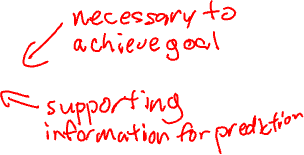 necessary to
achieve goal
supporting
information for prediction